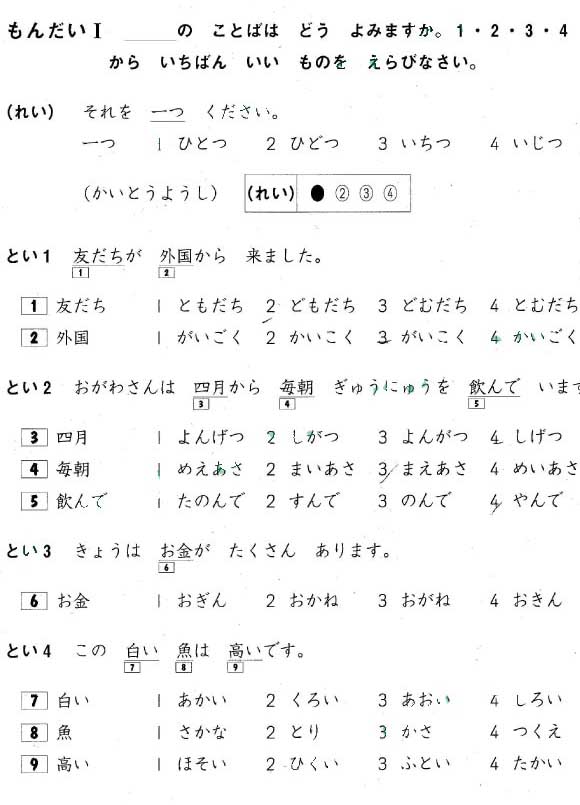 もんだいⅠ ＿＿＿の ことばは どう よみますか。1・2・3・4
から いちばん いい ものを えらびなさい。
(れい) それを 一つ ください。
一つ 1 ひとつ 2 ひどつ 3 いちつ 4 いじつ
(かいとうようし) (れい) ● ② ③ ④
とい1 友だちが 外国から 来ました。
1 2
1 友だち 1 ともだち 2 どもだち 3 どむだち 4 とむだち
2 外国 1 がいごく 2 かいこく 3 がいこく 4 かいごく
とい2 おがわさんは 四月から 毎朝 ぎゅうにゅうを 飲んで います
3 4 5
3 四月 1 よんげつ 2 しがつ 3 よんがつ 4 しげつ
4 毎朝 1 めえあさ 2 まいあさ 3 まえあさ 4 めいあさ
5 飲んで 1 たのんで 2 すんで 3 のんで 4 やんで
とい3 きょうは お金が たくさん あります。
6
6 お金 1 おぎん 2 おかね 3 おがね 4 おきん
とい4 この 白い 魚は 高いです。
7 8 9
7 白い 1 あかい 2 くろい 3 あおい 4 しろい
8 魚 1 さかな 2 とり 3 かさ 4 つくえ
9 高い 1 ほそい 2 ひくい 3 ふとい 4 たかい